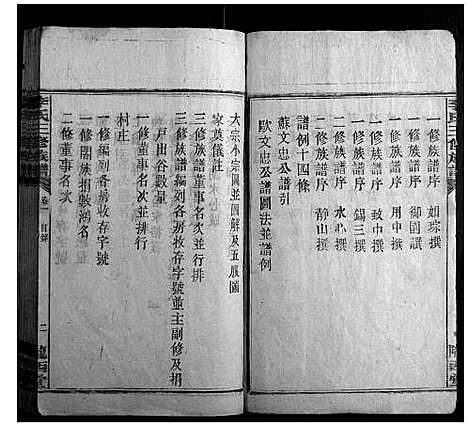 李氏三修族譜
一修族譜序 如琮撰
一修族譜序 御園撰
一修族譜序 用中撰
二修族譜序 致中撰
二修族譜序 錫三撰
二修族譜序 水心撰
二修族譜序 靜山撰
譜例十四條
蘇文忠公譜引
歐文忠公譜圖法並譜例
隴西堂
大宗小宗圖並圖解及五服圖
家奠儀註
三修族譜董事名次並行排
三修族譜編列各房收存字號並主副修及捐
戶出谷數量
一修董事名次並行排
村庄
一修編列各房收存字號
一修閤族捐數鴻名
二修董事名次
李氏三修族譜 卷一 目錄 二 隴西堂